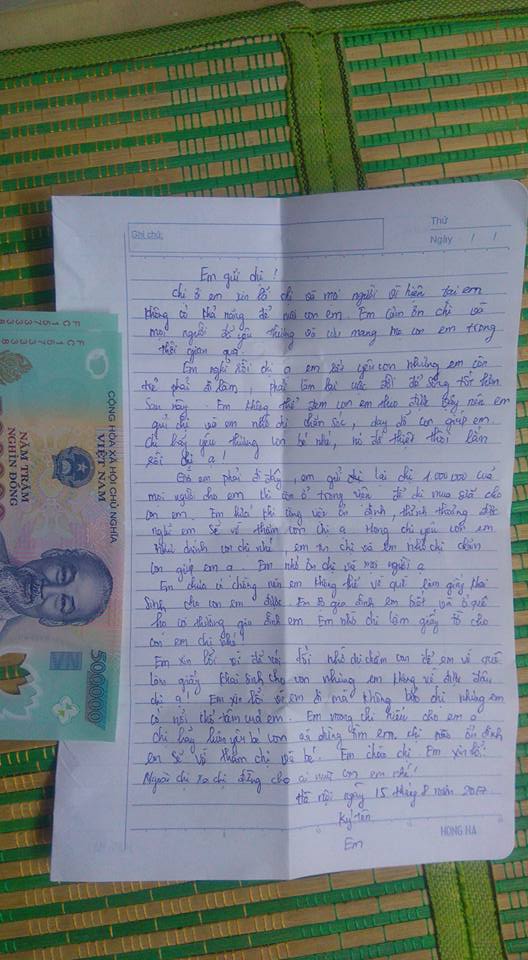 Ghi chú:
Thứ
Ngày / /
Em gửi chị !
Chị ơi em xin lỗi chị và mọi người vì hiện tại em
không có khả năng để nuôi con em. Em cảm ơn chị và
mọi người đã yêu thương và cưu mang mẹ con em trong
thời gian qua.
Em nghĩ rồi chị ạ em rất yêu con nhưng em còn
trẻ phải đi làm, phải làm lại cuộc đời để sống tốt hơn
Sau này. Em không thể đem con em theo được vậy nên em
gửi chị và em nhờ chị chăm sóc, dạy dỗ con giúp em.
Chị hãy yêu thương con bé nhé, nó đã thiệt thòi lắm
rồi chị ạ !
Giờ em phải đi đây, em gửi lại chị 1.000.000 của
mọi người cho em khi còn ở trong viện để chị mua sữa cho
con em. Em hứa khi công việc ổn định, thỉnh thoảng được
nghỉ em sẽ về thăm con chị ạ. Mong chị yêu con em
như chính con chị nhé, em tin chị và em nhờ chị chăm
con giúp em ạ. Em nhớ ơn chị và mọi người ạ
Em chưa có chồng nên em không thể về quê làm giấy khai
Sinh cho con em được. Em sợ gia đình em biết và ở quê
họ cả thường gia đình em Em nhờ chị làm giấy tờ cho
con em chị nhé.
Em xin lỗi vì đã nói dối nhờ chị chăm con để em về quê
làm giấy khai sinh cho con nhưng em không về được đâu
chị ạ ! Em xin lỗi vì em đi mà không báo chị nhưng em
có nỗi khổ tâm của em. Em mong chị hiểu cho em ạ
Chị hãy luôn yêu bé con và đừng tìm em. Khi nào ổn định
em sẽ về thăm chị và bé. Em chào chị Em xin lỗi.
Ngoài chị ra chị đừng cho ai nuôi con em nhé!
Hà nội ngày 15 tháng 8 năm 2017
Ký tên
Em
HONG HA
CỘNG HÒA XÃ HỘI CHỦ NGHĨA
VIỆT NAM
NĂM TRĂM
NGHÌN ĐỒNG
500000